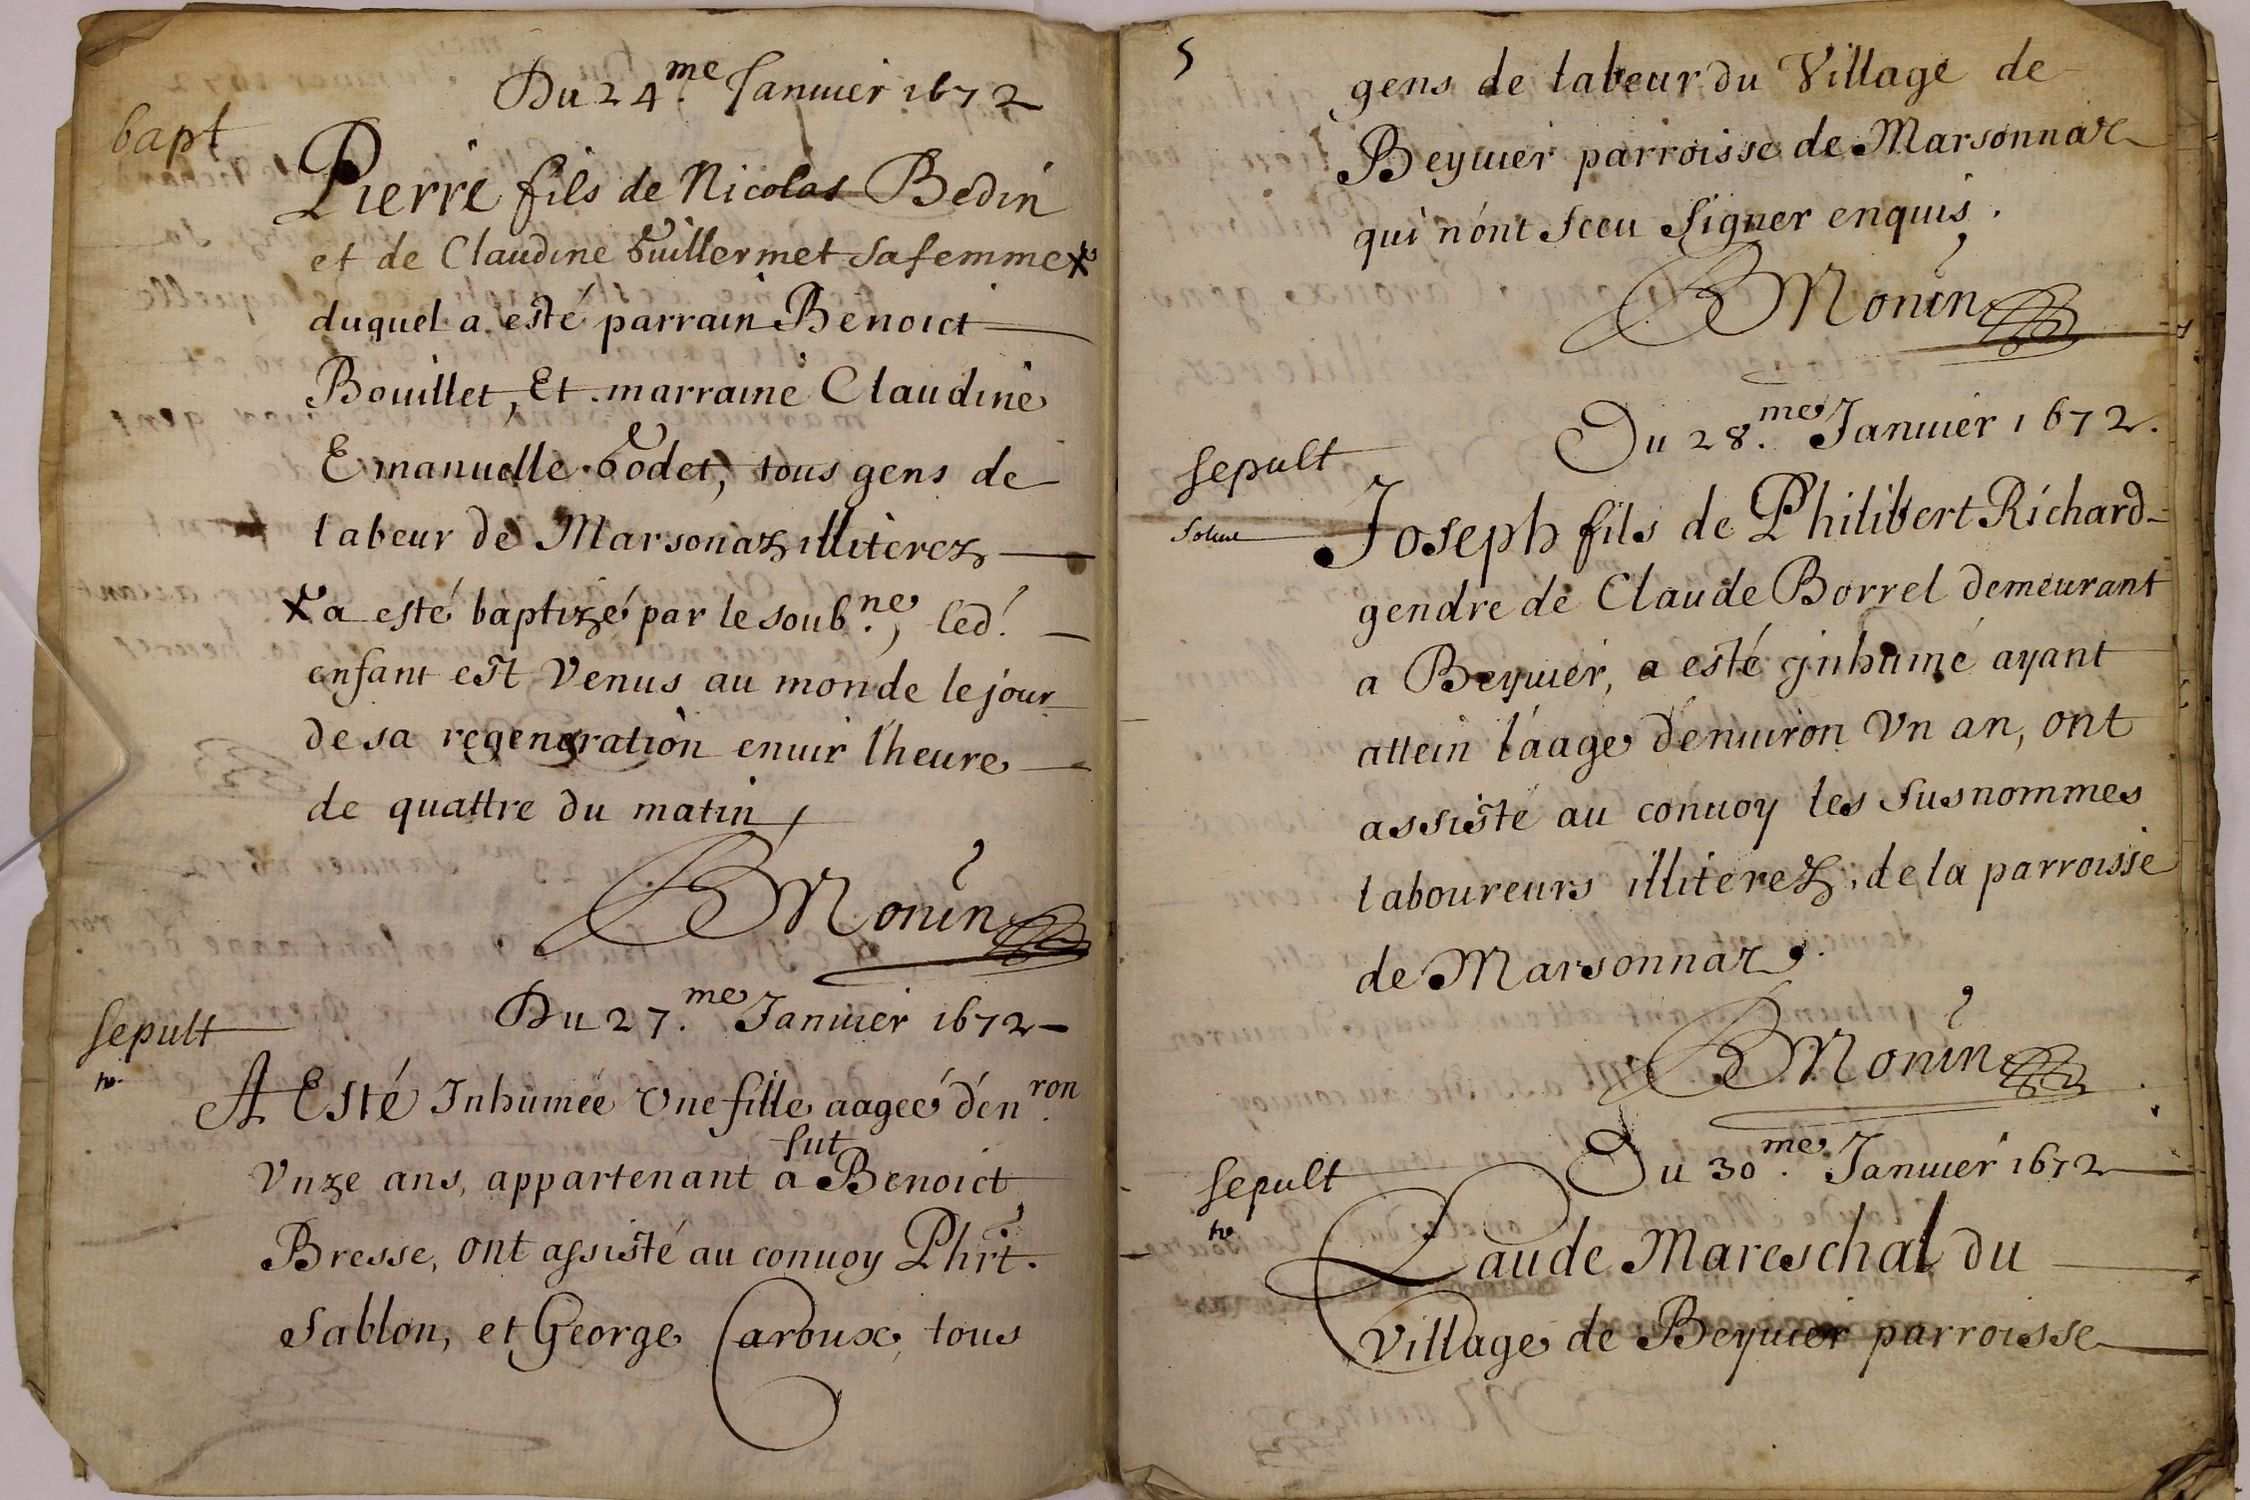 Du 24.me Januier 1672
bapt
Pierre fils de Nicolas Bedin
et de Claudine Guillermet sa femme x
duquel a esté parrain Benoict
Bouillet, Et marraine Claudine
Emanuelle Godet, tous gens de
labeur de Marsonaz illiterez
x a esté baptizé par le soub.ne, led.
enfant est Venus au monde le jour
de sa regeneration enuir l'heure
de quattre du matin
BMonin
Du 27.me Januier 1672
sepult
A Esté Inhumée Vne fille aageé d'én.ron
fut
Vnze ans, appartenant a Benoict
Bresse, ont assisté au conuoy Phrt.
Sablon, et George Caroux, tous
5
gens de labeur du Village de
Beyuier parroisse de Marsonnaz
qui n'ont sceu signer enquis.
BMonin
Du 28.me Januier 1672.
sepult
Joseph fils de Philibert Richard
gendre de Claude Borrel demeurant
a Beyuier, a esté jnhumé ayant
attein l'aage d'enuiron Vn an, ont
assisté au conuoy les susnommes
laboureurs illiterez, de la parroisse
de Marsonnaz.
BMonin
Du 30.me Januier 1672
sepult
Claude Mareschal du
Village de Beyuier parroisse